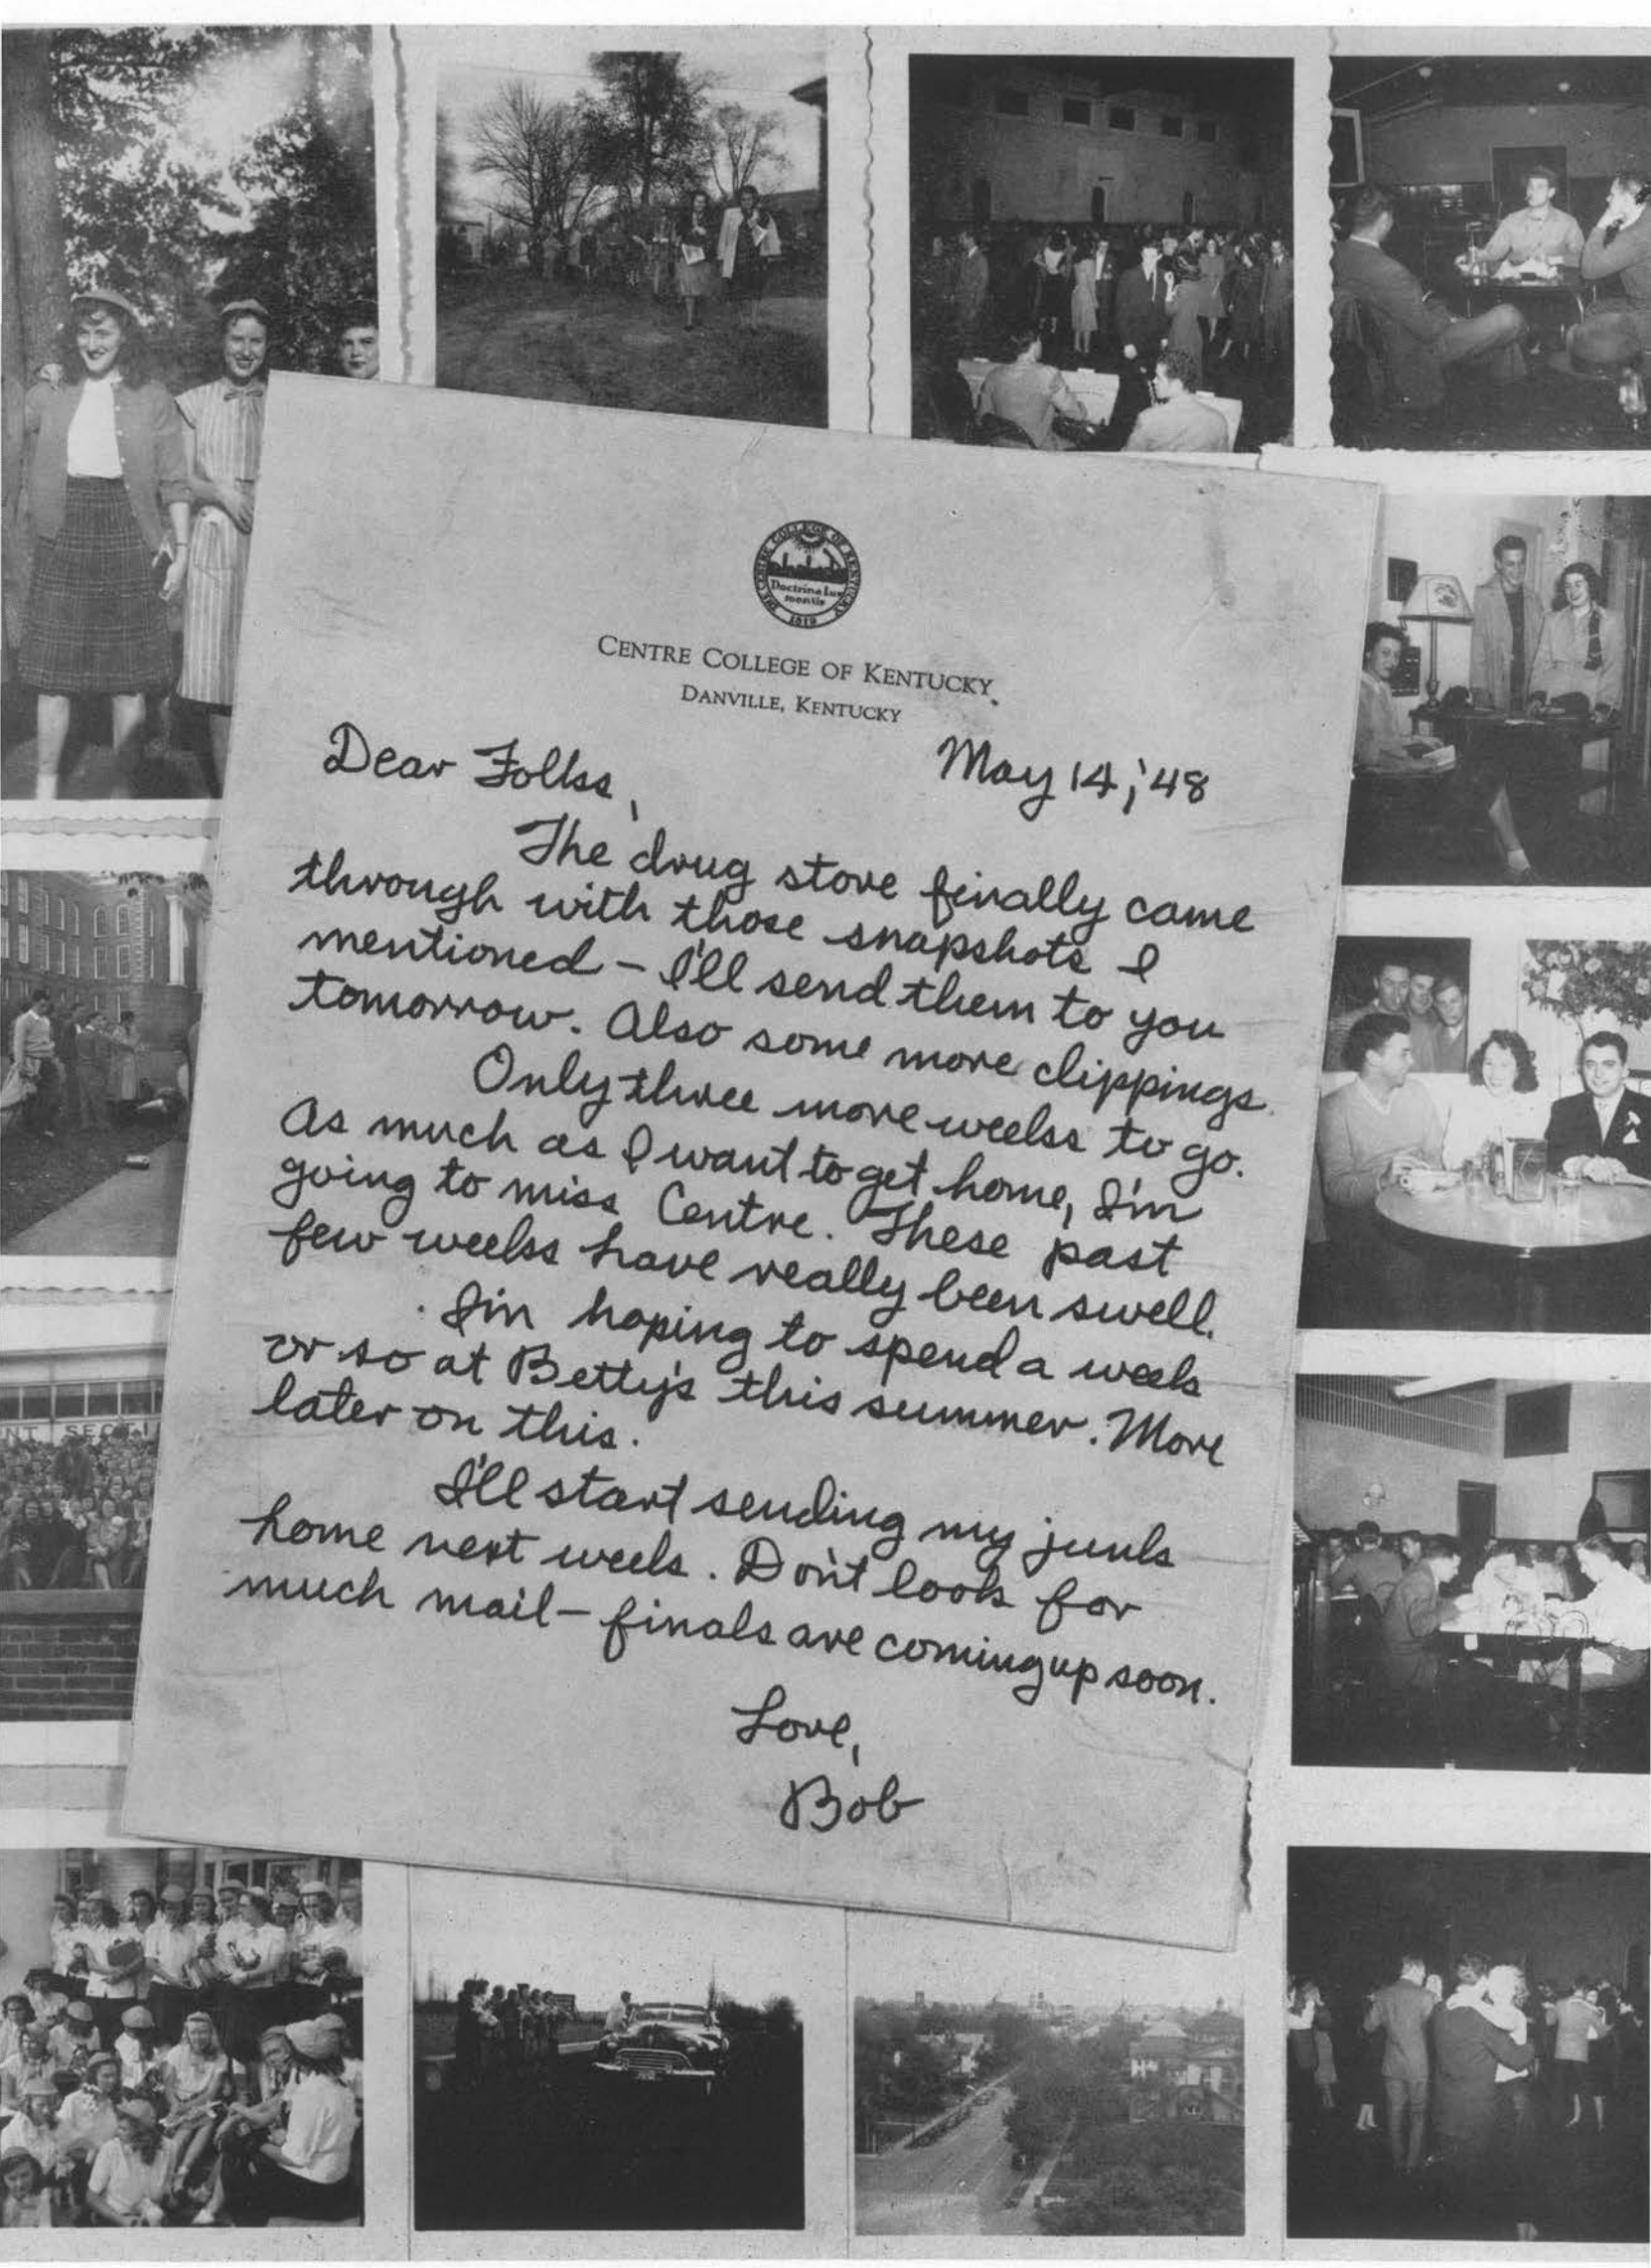 THE CENTRE COLLEGE OF KENTUCKY
Doctrina Lux
mentis
1819
CENTRE COLLEGE OF KENTUCKY
DANVILLE, KENTUCKY
May 14, '48
Dear Folks,
The drug store finally came
through with those snapshots I
mentioned – I'll send them to you
tomorrow. Also some more clippings.
Only three more weeks to go.
As much as I want to get home, I'm
going to miss Centre. These past
few weeks have really been swell.
I'm hoping to spend a week
or so at Betty's this summer. More
later on this.
I'll start sending my junk
home next week. Don't look for
much mail – finals are coming up soon.
Love,
Bob
NT SECTI